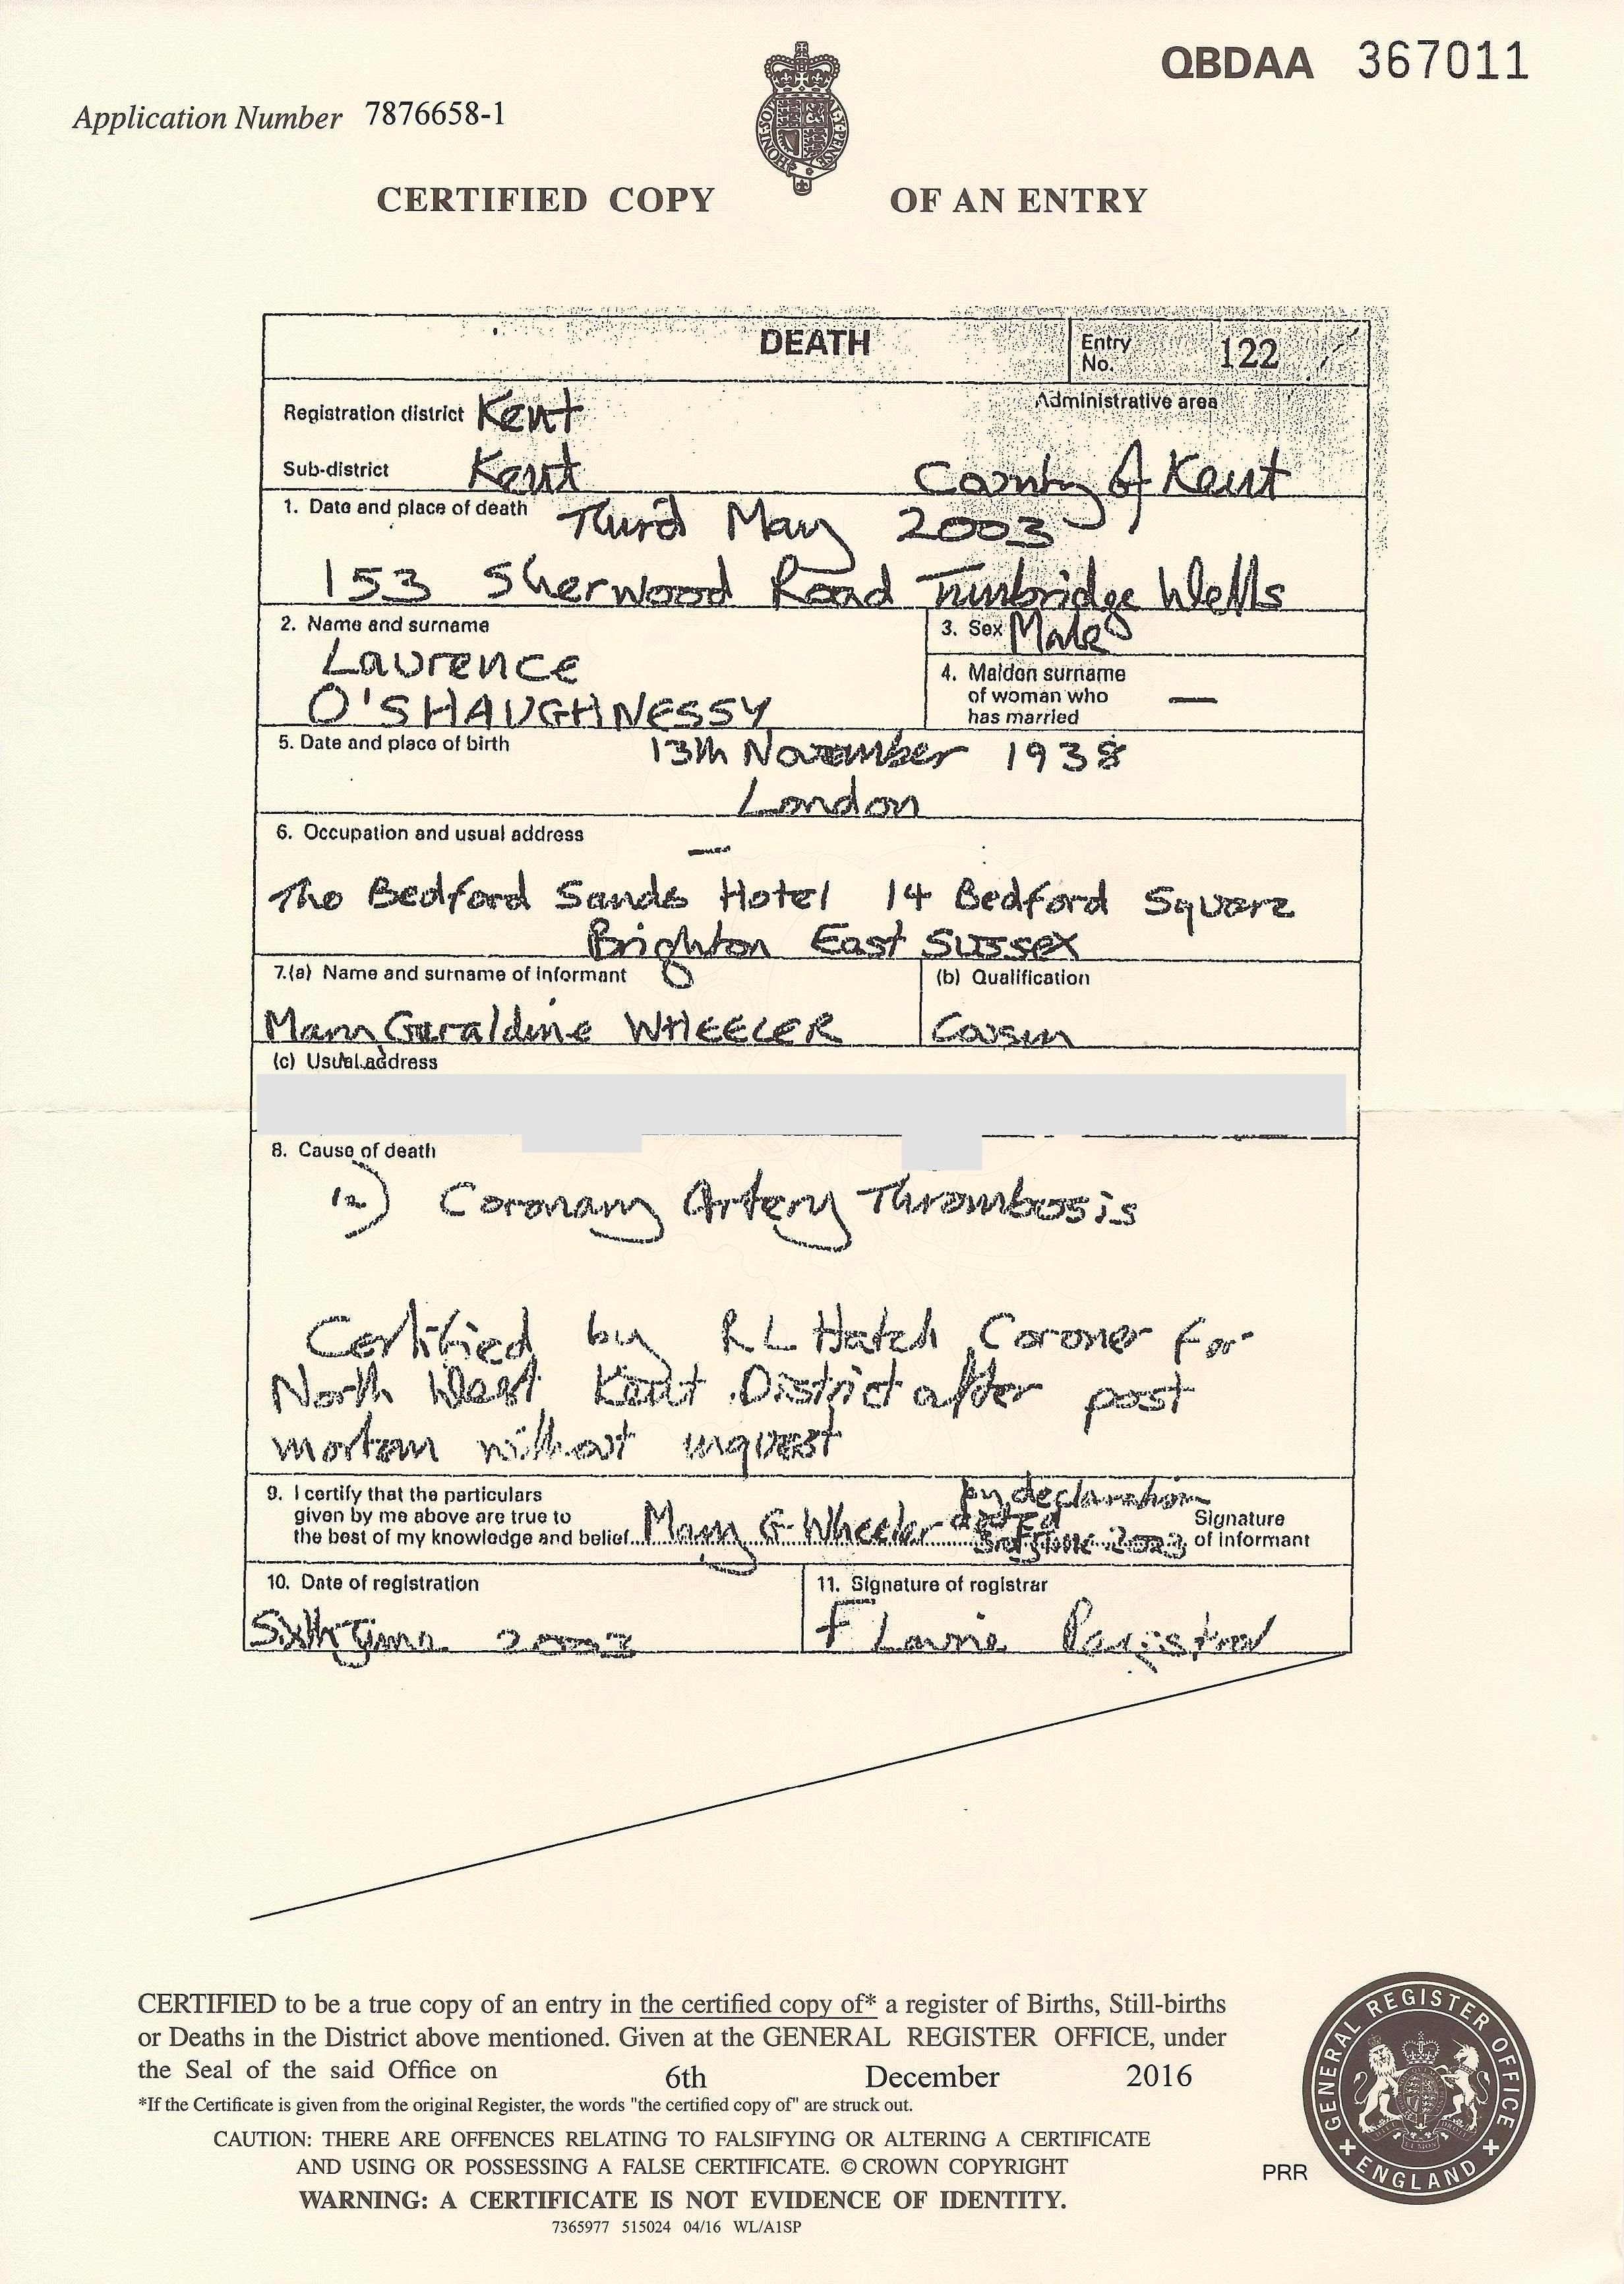 QBDAA 367011
Application Number 7876658-1
CERTIFIED COPY OF AN ENTRY
DEATH
Entry No. 122
Registration district Kent
Administrative area
Sub-district Kent
County of Kent
1. Date and place of death Third May 2003
153 Sherwood Road Tunbridge Wells
2. Name and surname
Laurence
O'SHAUGHNESSY
3. Sex Male
4. Maiden surname
of woman who
has married
—
5. Date and place of birth 13th November 1938
London
6. Occupation and usual address
—
The Bedford Sands Hotel 14 Bedford Square
Brighton East Sussex
7.(a) Name and surname of informant
Mary Geraldine WHEELER
(b) Qualification
Cousin
(c) Usual address
8. Cause of death
1a) Coronary Artery Thrombosis
Certified by R L Hatch Coroner for
North West Kent District after post
mortem without inquest
9. I certify that the particulars
given by me above are true to
the best of my knowledge and belief Mary G Wheeler
by declaration
dated
June 2003
Signature
of informant
10. Date of registration
Sixth June 2003
11. Signature of registrar
F Lawrie Registrar
CERTIFIED to be a true copy of an entry in the certified copy of* a register of Births, Still-births
or Deaths in the District above mentioned. Given at the GENERAL REGISTER OFFICE, under
the Seal of the said Office on 6th December 2016
*If the Certificate is given from the original Register, the words "the certified copy of" are struck out.
CAUTION: THERE ARE OFFENCES RELATING TO FALSIFYING OR ALTERING A CERTIFICATE
AND USING OR POSSESSING A FALSE CERTIFICATE. © CROWN COPYRIGHT
WARNING: A CERTIFICATE IS NOT EVIDENCE OF IDENTITY.
7365977 515024 04/16 WL/A1SP
PRR
GENERAL REGISTER OFFICE
ENGLAND